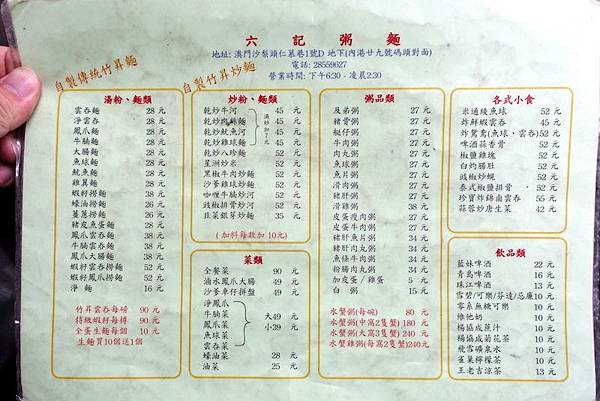 六記粥麵
地址: 澳門沙梨頭仁慕巷1號D 地下(內港廿九號碼頭對面)
電話: 28559627
營業時間: 下午6:30 - 凌晨2:30
自製傳統竹昇麵
自製竹昇炒麵
湯粉、麵類
雲吞麵 28 元
淨雲吞 28 元
鳳爪麵 28 元
牛腩麵 28 元
大腸麵 28 元
魚球麵 28 元
魷魚麵 28 元
雞翼麵 28 元
蝦籽撈麵 38 元
蠔油撈麵 26 元
薑蔥撈麵 26 元
豬皮魚蛋麵 28 元
鳳爪雲吞麵 38 元
牛腩雲吞麵 38 元
鳳爪大腸麵 38 元
蝦籽雲吞撈麵 52 元
蝦籽鳳爪撈麵 52 元
淨 麵 16 元
竹昇雲吞每磅 90 元
特級蝦籽每樽 90 元
全蛋生麵每個 10 元
生麵買10個送1個
炒粉、麵類
乾炒牛河 45 元
乾炒肉絲麵 45 元
乾炒魷魚河 45 元
乾炒雞球麵 45 元
濕炒加7元
乾炒八珍麵 52 元
星洲炒米 52 元
黑椒牛肉炒麵 52 元
沙爹雞球炒麵 52 元
咖喱牛腩炒麵 52 元
豉椒排骨炒河 52 元
韭菜銀芽炒麵 35 元
(加料每款加10元)
菜類
全餐菜 90 元
滷水鳳爪大腸 49 元
沙爹車仔拼盤 49 元
淨鳳爪
牛腩菜
鳳爪菜
魚球菜
雲吞菜
大49 元
小39 元
蠔油菜 28 元
油菜 25 元
粥品類
及弟粥 27 元
豬骨粥 27 元
艇仔粥 27 元
牛肉粥 27 元
肉丸粥 27 元
魚球粥 27 元
魚片粥 27 元
滑肉粥 27 元
豬肝粥 27 元
滑雞粥 38 元
皮蛋瘦肉粥 27 元
皮蛋肉丸粥 27 元
豬肝魚片粥 27 元
豬肝肉丸粥 27 元
魚條牛肉粥 27 元
粉腸肉丸粥 27 元
加皮蛋 / 雞蛋 5 元
白 粥 15 元
水蟹粥(每碗) 80 元
水蟹粥(中窩2隻蟹) 180 元
水蟹粥(大窩3隻蟹) 240 元
水蟹雞粥(每窩2隻蟹) 240元
各式小食
米通綾魚球 52 元
炸鮮蝦雲吞 45 元
炸鴛鴦(魚球、雲吞) 52 元
啤酒蒜香骨 52 元
椒鹽雞塊 52 元
白灼腸肚 52 元
豉椒炒蜆 52 元
泰式椒鹽排骨 52 元
珍寶炸錦鹵雲吞 55 元
蒜蓉炒唐生菜 42 元
飲品類
藍妹啤酒 22 元
青島啤酒 16 元
珠江啤酒 13 元
雪碧/可樂/芬達/忌廉 10元
零系無糖可樂 10 元
維他奶 10 元
楊協成蔗汁 10 元
楊協成菊花茶 10 元
飛雪礦泉水 10 元
雀巢檸檬茶 10 元
王老吉涼茶 13 元